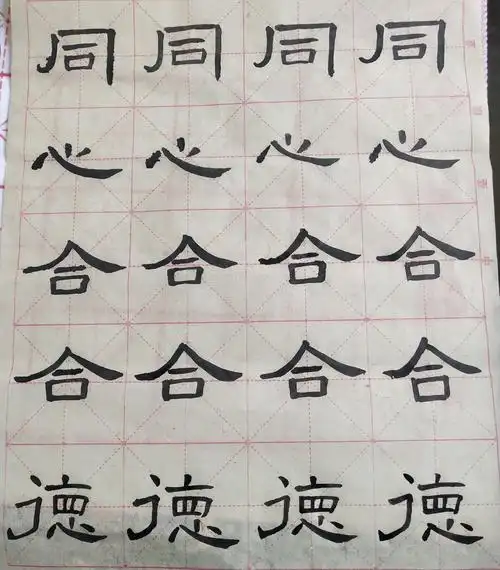 同同同同
心心心心
合合合合
合合合合
德德德德